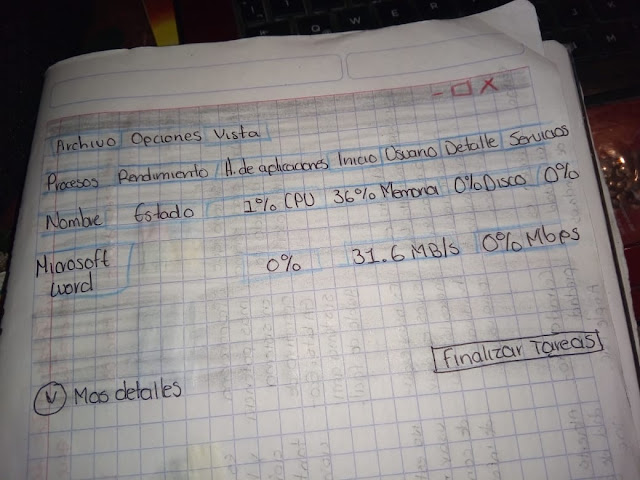 - □ X
Archivo Opciones Vista
Procesos Rendimiento H. de aplicaciones Inicio Usuario Detalle Servicios
Nombre Estado 1% CPU 36% Memoria 0% Disco 0%
Microsoft word 0% 31.6 MB/s 0% Mbps
Finalizar Tareas
v Mas detalles